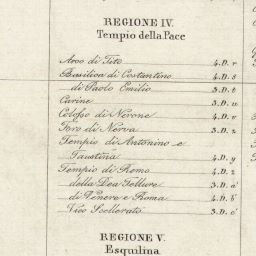 REGIONE IV.
Tempio della Pace
Arco di Tito 4.D. r
Basilica di Costantino 4.D. s
di Paolo Emilio 3.D. t
Carine 3.D. u
Colosso di Nerone 4.D. v
Foro di Nerva 3.D. z
Tempio di Antonino e
Faustina 4.D. y
Tempio di Remo 4.D. z
della Dea Tellure 3.D. a'
di Venere e Roma 4.D. b'
Vico Scellerato 3.D. c'
REGIONE V.
Esquilina